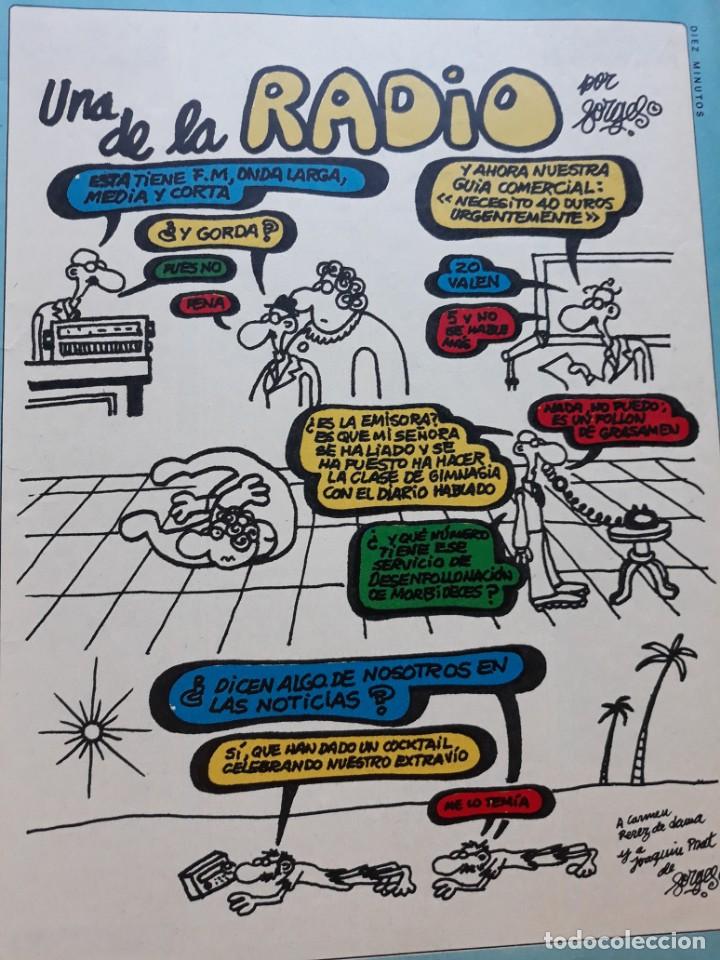 DIEZ MINUTOS
Una
de la RADIO
por
Forges
ESTA TIENE F.M, ONDA LARGA,
MEDIA Y CORTA
¿Y GORDA?
PUES NO
PENA
Y AHORA NUESTRA
GUIA COMERCIAL:
«NECESITO 40 DUROS
URGENTEMENTE»
20
VALEN
5 Y NO
SE HABLE
MAS
¿ES LA EMISORA?
ES QUE MI SEÑORA
SE HA LIADO Y SE
HA PUESTO HA HACER
LA CLASE DE GIMNASIA
CON EL DIARIO HABLADO
NADA, NO PUEDO;
ES UN FOLLON
DE GRASAMEN
¿Y QUÉ NÚMERO
TIENE ESE
SERVICIO DE
DESENFOLLONACIÓN
DE MORBIDECES?
¿DICEN ALGO DE NOSOTROS EN
LAS NOTICIAS?
SÍ, QUE HAN DADO UN COCKTAIL
CELEBRANDO NUESTRO EXTRAVÍO
ME LO TEMÍA
A Carmen
Perez de Lama
y a
Joaquin Prat
de
Forges
todocoleccion
todocoleccion.net